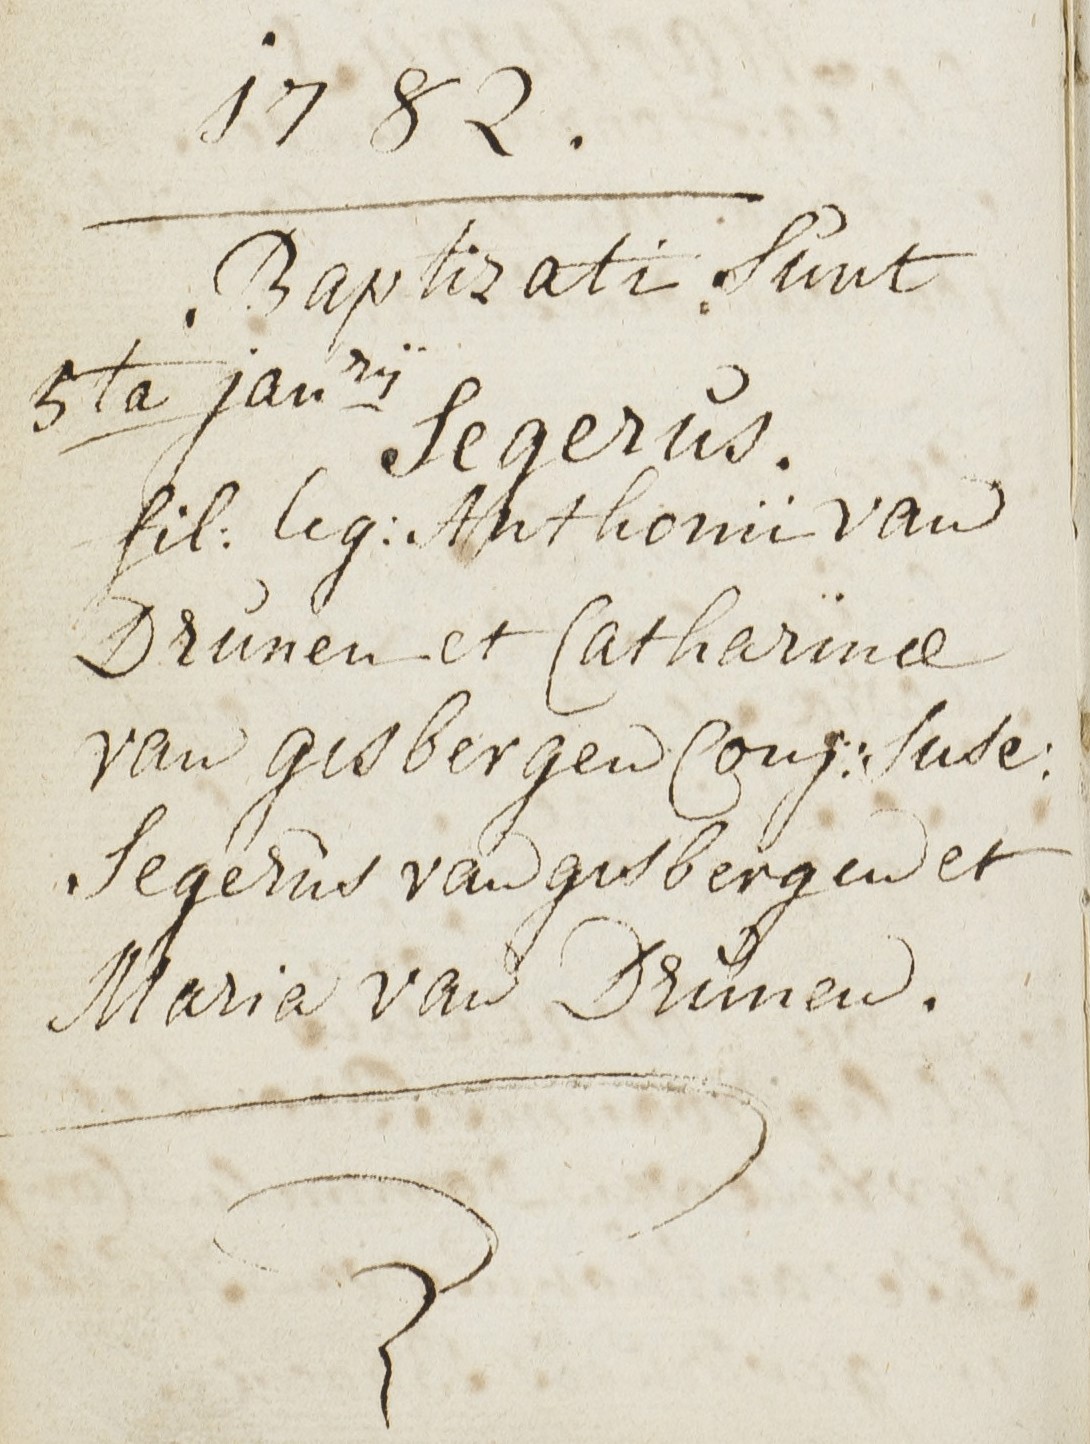 1782.
Baptizati Sunt
5ta janrÿ
Segerus.
fil: leg: Anthonii van
Drunen et Catharinæ
van gisbergen Conj: Susc:
Segerus van gisbergen et
Maria van Drunen.